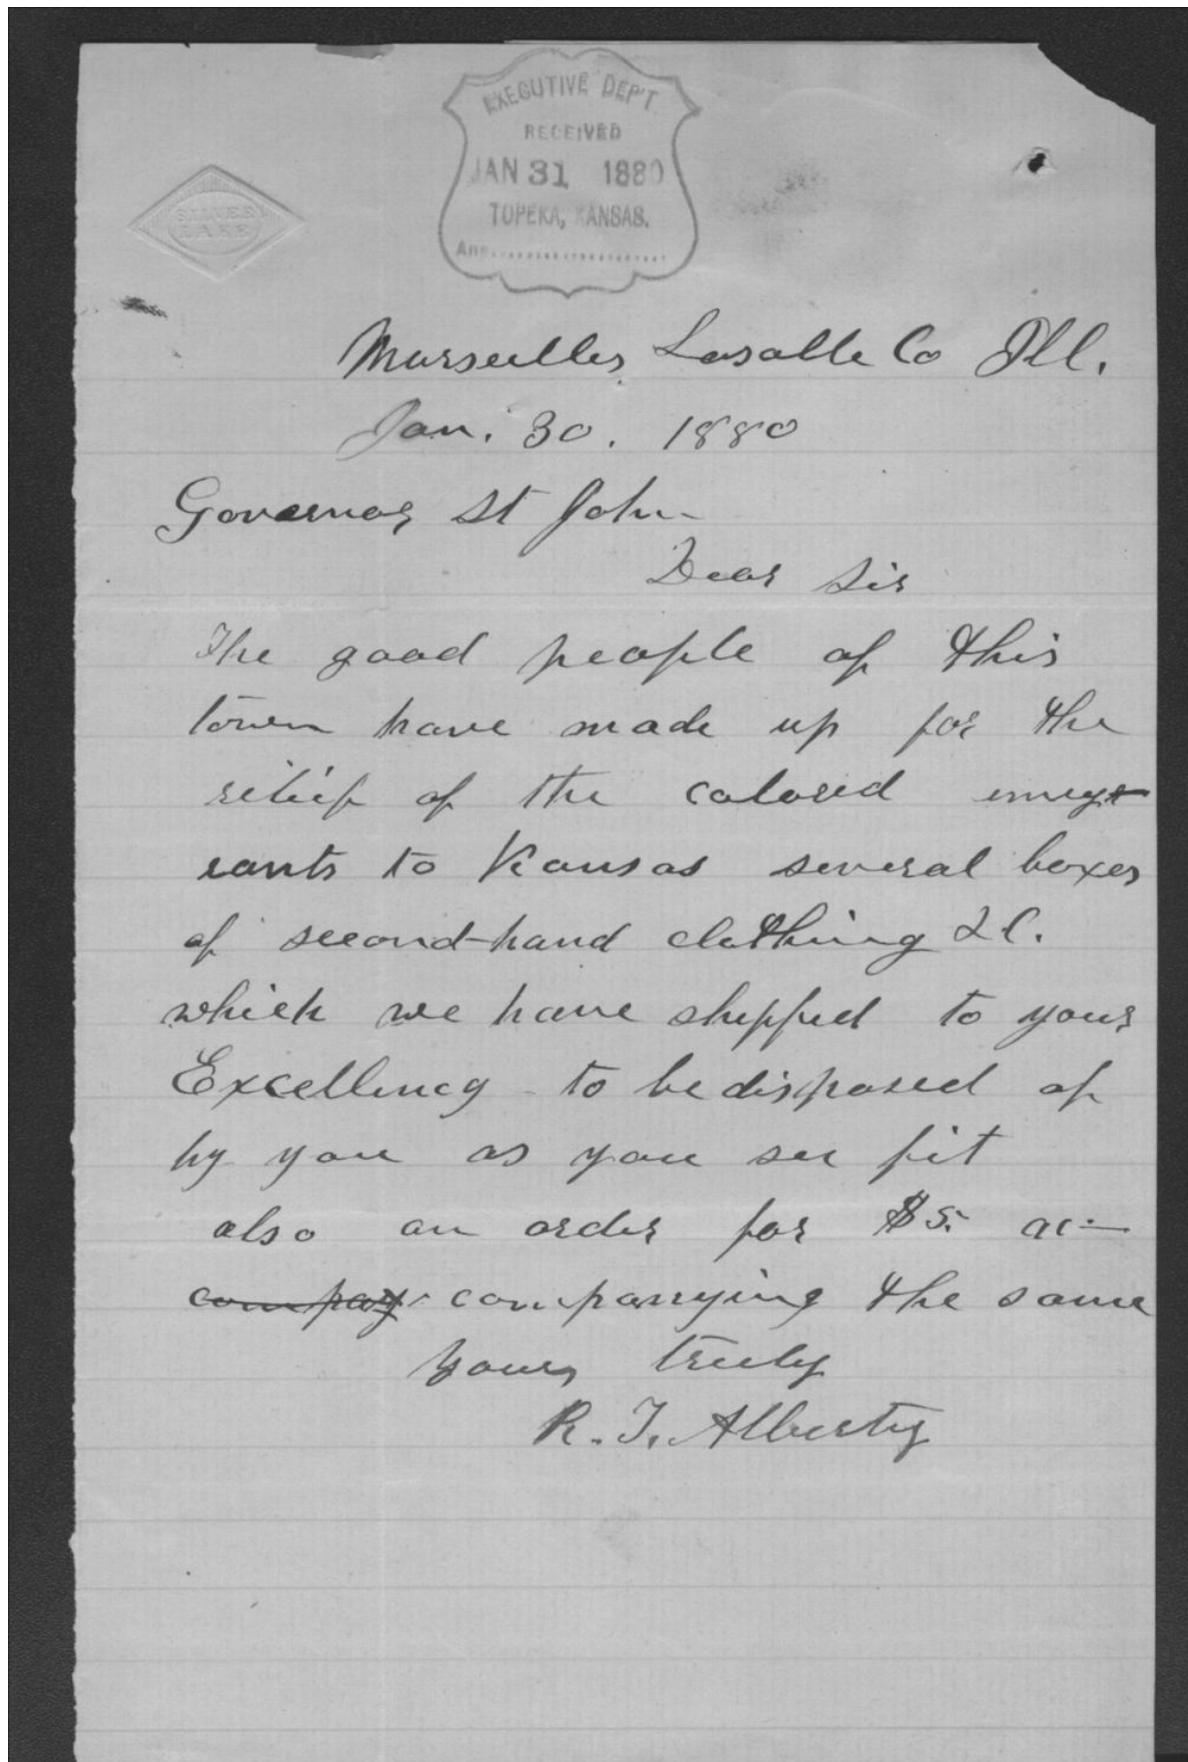 EXECUTIVE DEP'T
RECEIVED
JAN 31 1880
TOPEKA, KANSAS.
Ans
SILVER
LAKE
Marseilles, Lasalle Co Ill.
Jan. 30. 1880
Governor St John
Dear Sir
The good people of this
town have made up for the
relief of the colored emig
rants to Kansas several boxes
of second-hand clothing &C.
which we have shipped to your
Excellency to be disposed of
by you as you see fit
also an order for $5. ac-
compay companying the same
Yours truly
R. T. Alberty